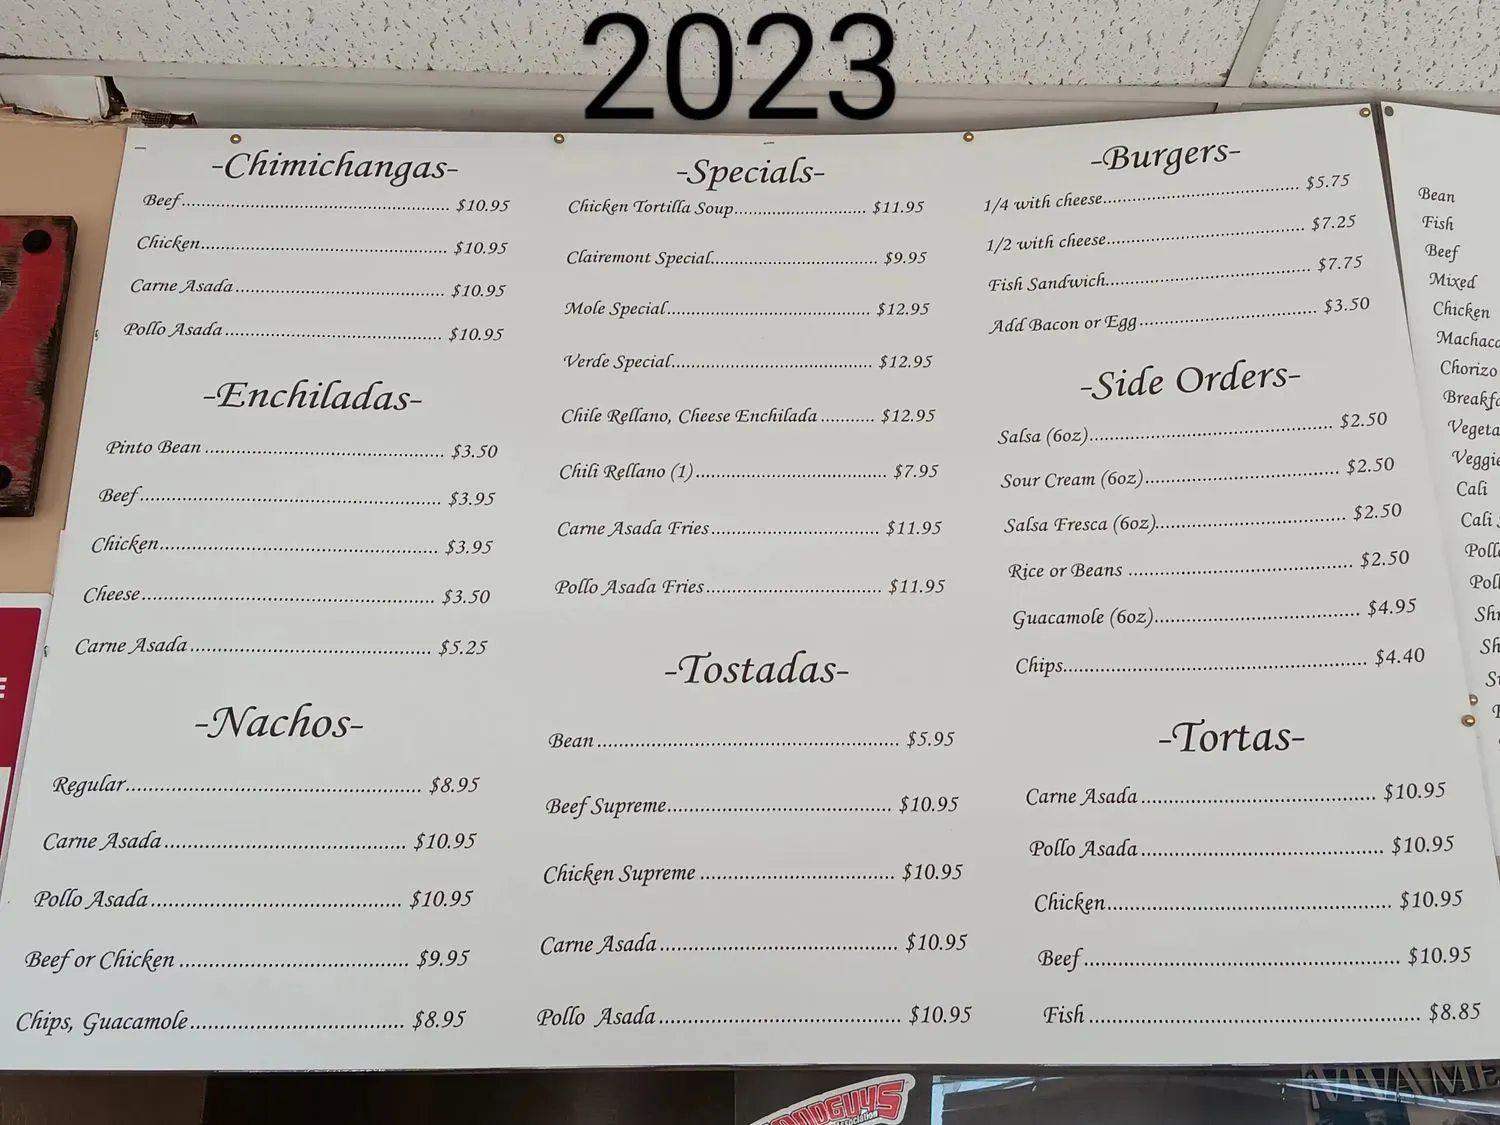 2023
-Chimichangas-
Beef................................................ $10.95
Chicken............................................ $10.95
Carne Asada...................................... $10.95
Pollo Asada........................................ $10.95
-Enchiladas-
Pinto Bean........................................... $3.50
Beef...................................................... $3.95
Chicken.................................................. $3.95
Cheese.................................................... $3.50
Carne Asada.......................................... $5.25
-Nachos-
Regular................................................... $8.95
Carne Asada.......................................... $10.95
Pollo Asada........................................... $10.95
Beef or Chicken...................................... $9.95
Chips, Guacamole.................................... $8.95
-Specials-
Chicken Tortilla Soup....................... $11.95
Clairemont Special............................. $9.95
Mole Special..................................... $12.95
Verde Special.................................... $12.95
Chile Rellano, Cheese Enchilada.......... $12.95
Chili Rellano (1)................................. $7.95
Carne Asada Fries.............................. $11.95
Pollo Asada Fries............................... $11.95
-Tostadas-
Bean.................................................... $5.95
Beef Supreme........................................ $10.95
Chicken Supreme.................................. $10.95
Carne Asada.......................................... $10.95
Pollo Asada........................................... $10.95
-Burgers-
1/4 with cheese.................................... $5.75
1/2 with cheese.................................... $7.25
Fish Sandwich...................................... $7.75
Add Bacon or Egg................................. $3.50
-Side Orders-
Salsa (6oz)............................................ $2.50
Sour Cream (6oz)................................... $2.50
Salsa Fresca (6oz).................................. $2.50
Rice or Beans........................................ $2.50
Guacamole (6oz).................................... $4.95
Chips..................................................... $4.40
-Tortas-
Carne Asada.......................................... $10.95
Pollo Asada........................................... $10.95
Chicken.................................................. $10.95
Beef....................................................... $10.95
Fish....................................................... $8.85
Bean
Fish
Beef
Mixed
Chicken
Chorizo
Cali
Cali
GUYS